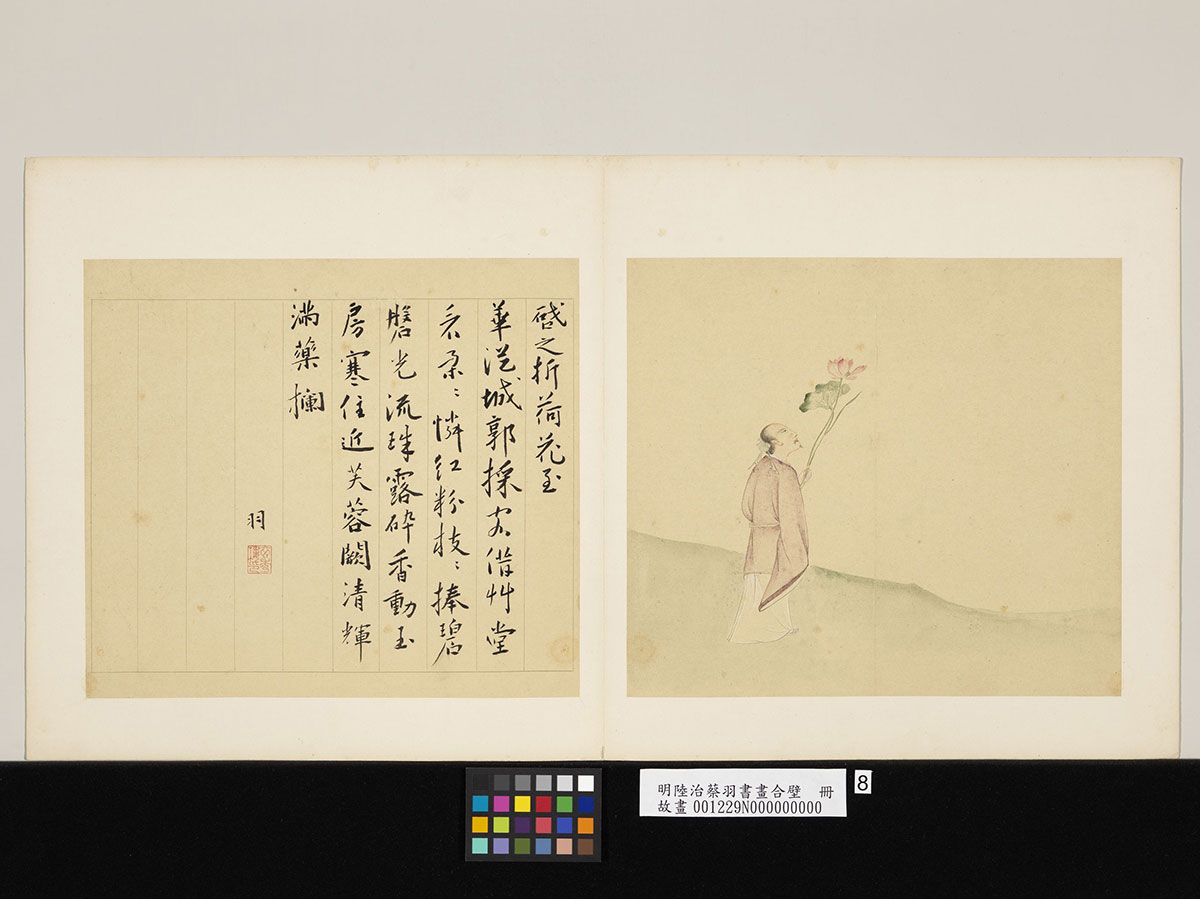 啓之折荷花至
華從城郭採客借艸堂
看朵〻憐紅粉枝〻捧碧
盤光流珠露碎香動玉
房寒住近芙蓉闕清輝
滿藥欄
羽
明陸治蔡羽書畫合璧 冊
故畫 001229N000000000
8